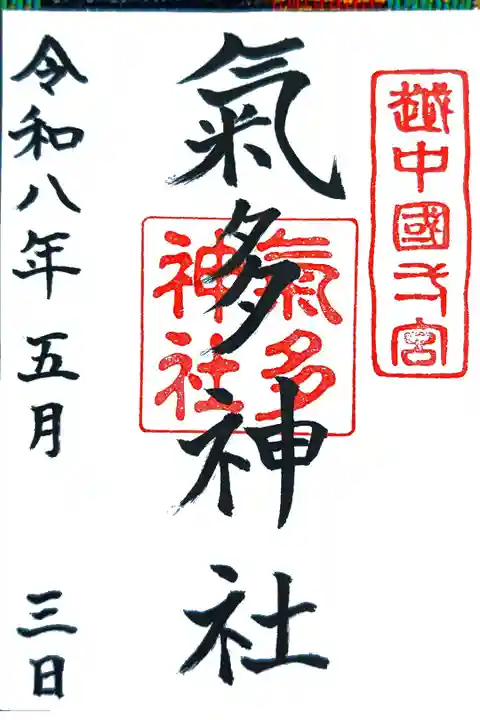 越中國弌宮
氣多神社
氣多
神社
令和八年 五月 三日